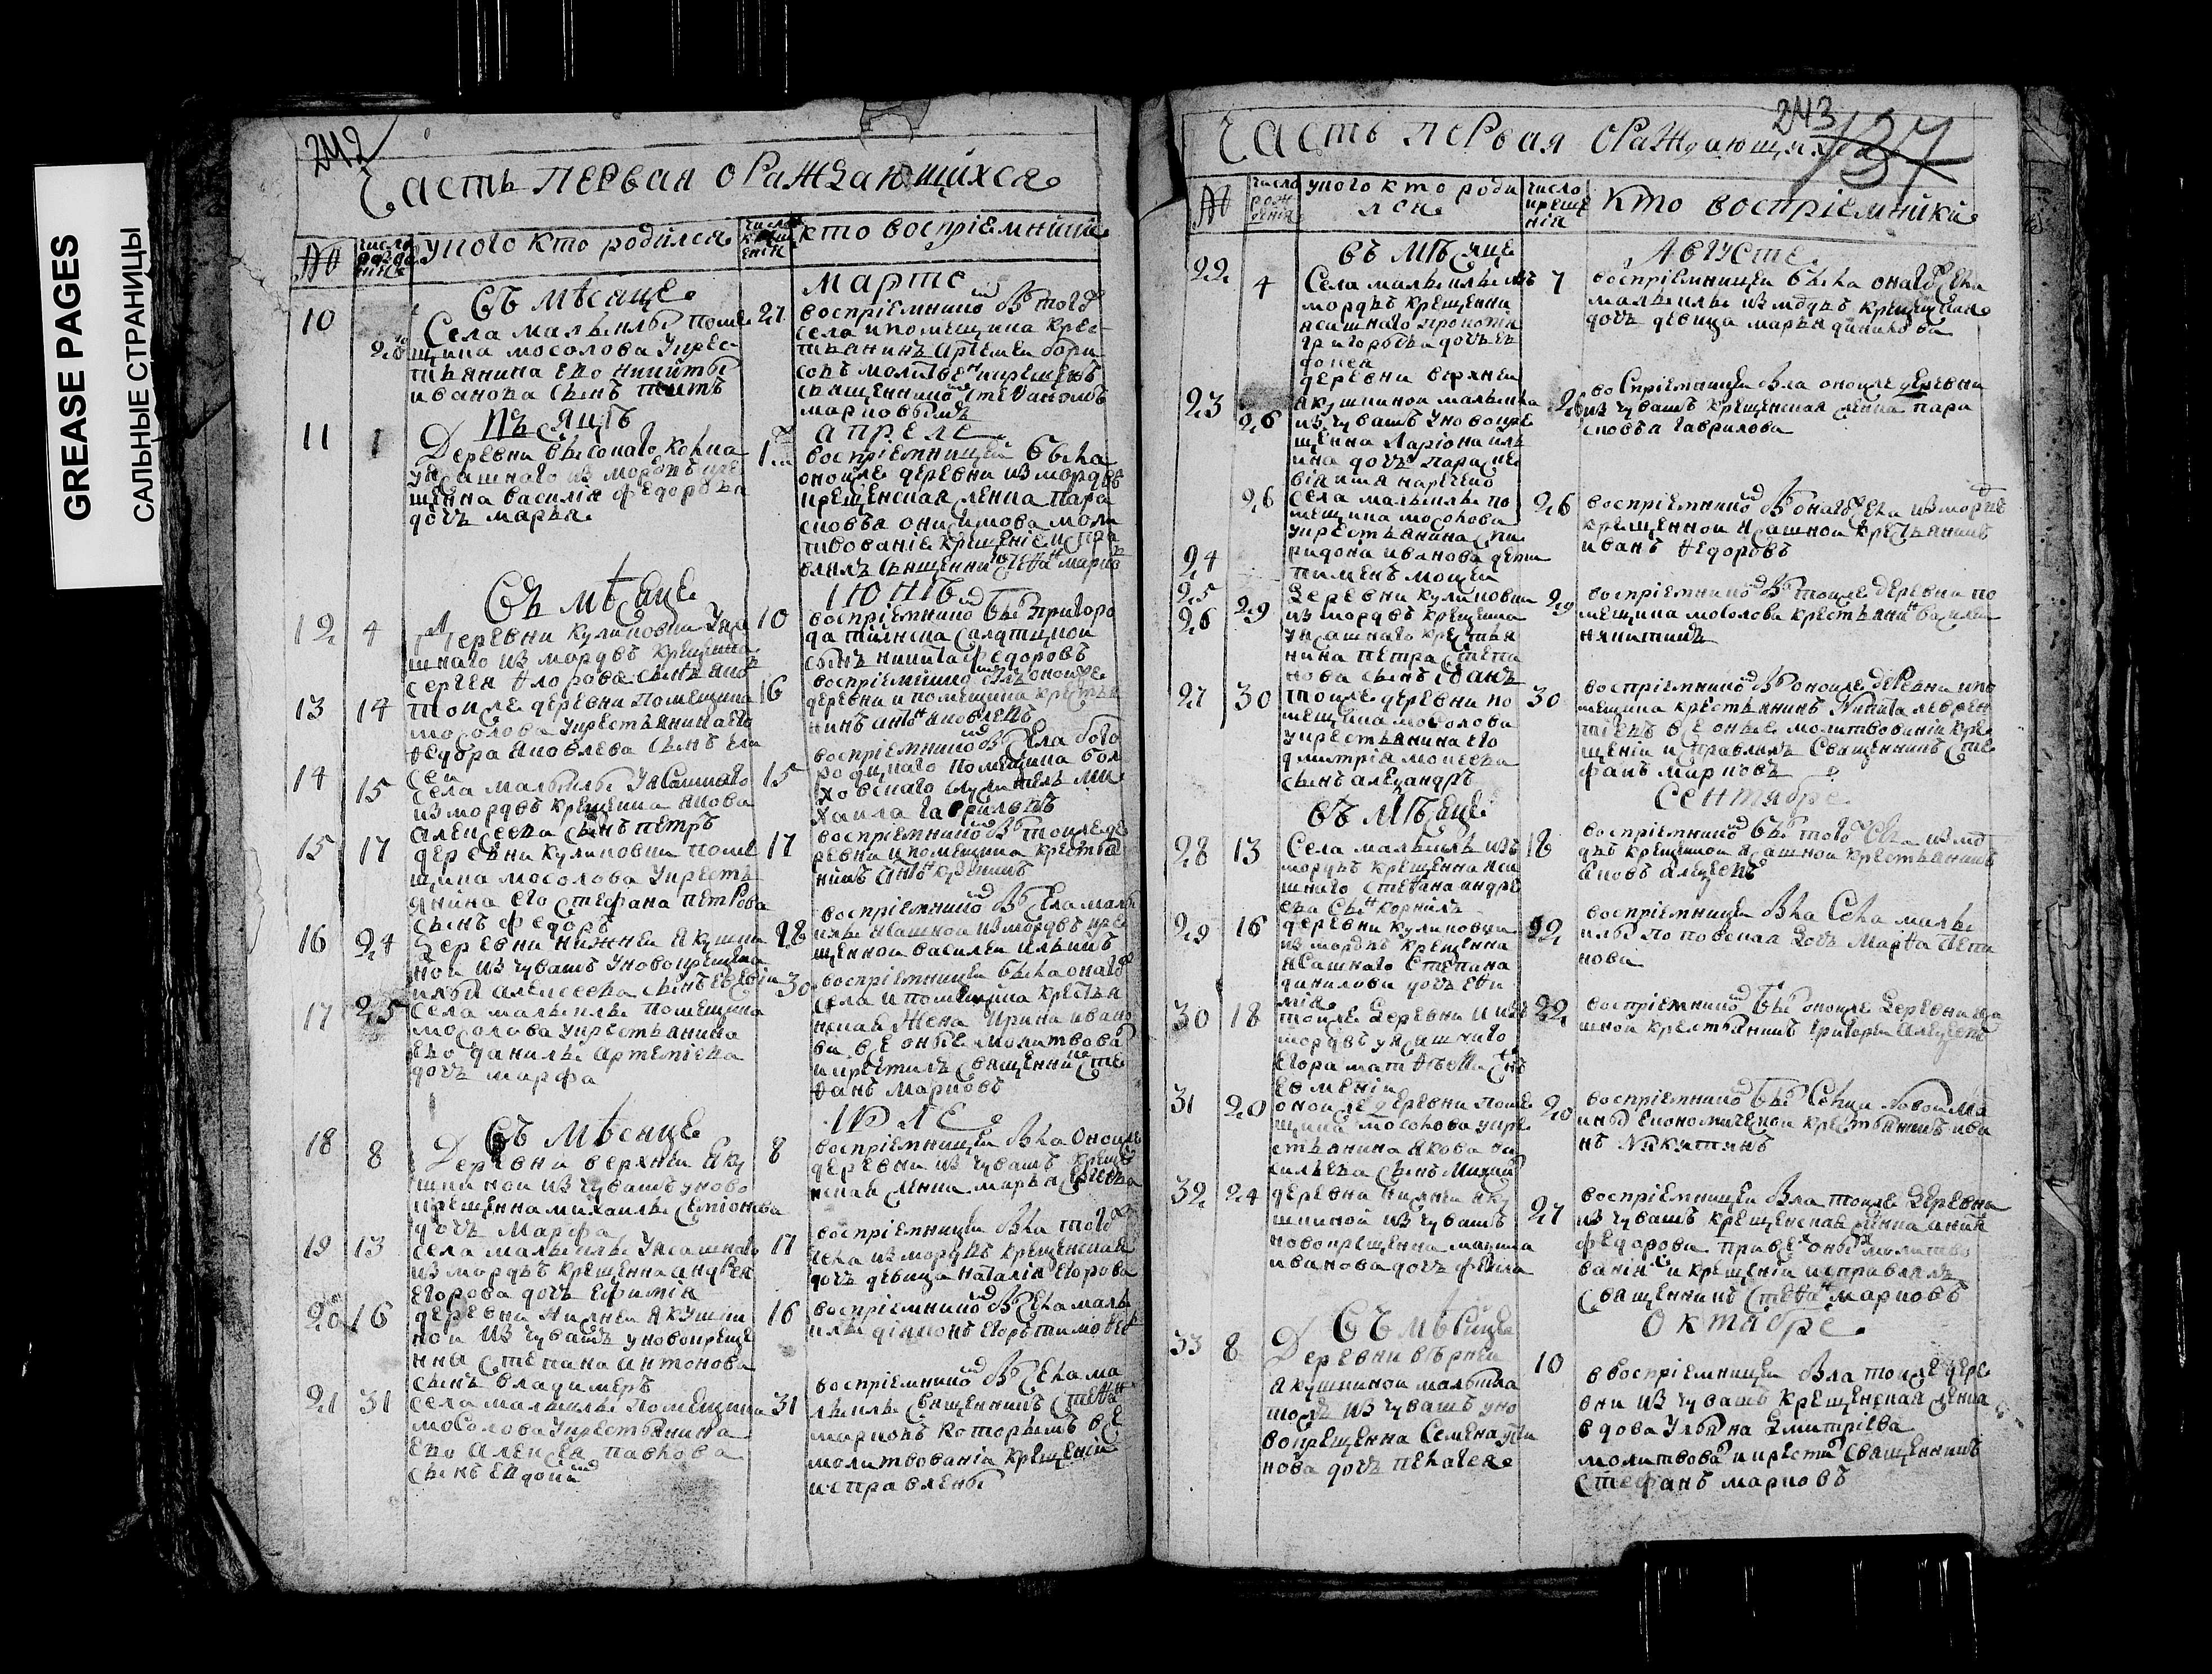 GREASE PAGES
САЛЬНЫЕ СТРАНИЦЫ
242
Часть первая о Раждающихся
№
число рожденія
у кого кто родился
число крещенія
кто воспріемники
Съ мѣсяце
марте
10
27
Села малыилы поме
щика мосолова у крес
тьянина ево никиты
иванова сынъ титъ
воспріемникъ был того
села и помещика крес
тьянинъ Артемеи бори
совъ
священникъ Стефаномъ
марковымъ
мѣсяцѣ
апреле
11
1
Деревни высокаго колка
у ясашнаго из мордвъ кре
щенна василія федорова
дочь марья
воспріемницеи была
оноиже деревни из мордвъ
крещенская женка пара
сковья онисимова моли
твованіе крещеніе испра
влялъ священникъ Стефан марков
Съ мѣсяце
Іюнѣ
12
4
10
Деревни куликовки у яса
шнаго из мордвъ крещенна
сергея флорова сынъ яко
воспріемникъ был пригоро
да тиинска салдатцкои
сынъ никита федоровъ
13
14
16
тоиже деревни помещика
мосолова у крестьянина его
федора яковлева сынъ ели
сеи
воспріемникъ былъ оноиже
деревни и помещика крестья
нинъ
14
15
15
Села малыилы у ясашнаго
из мордвъ крещенна якова
алексеева сынъ петръ
воспріемникъ был села бого
родицкаго помещика бол
ховскаго служитель ми
хаила гавриловъ
15
17
17
деревни куликовки поме
щика мосолова у кресть
янина его стефана петрова
сынъ федоръ
воспріемникъ был тоиже де
ревни и помещика крестья
нинъ
16
24
28
деревни нижнеи якушки
нои из чувашъ у новокрещена
ильи алексеева сынъ
воспріемникъ был села малы
илы ясашнои из мордвъ кре
щеннои василеи ильинъ
17
25
30
села малыилы помещика
мосолова у крестьянина
ево данилы артемиева
дочь марфа
воспріемницеи была онаго
села и помещика крестья
нская жена ирина ивано
ва все оные молитвова
и крестилъ священникъ сте
фанъ марковъ
Съ мѣсяце
Іюле
18
8
8
Деревни верхнеи яку
шкинои из чувашъ у ново
крещенна михаилы семіонова
дочь марфа
воспріемницеи была оноиж
деревни из чувашъ креще
нская женка марья
19
13
17
села малыилы у ясашнаго
из мордвъ крещенна андрея
егорова дочь ефимія
воспріемницеи была того
села из мордвъ крещенская
дочь девица наталія егорова
20
16
16
деревни нижнеи якушки
нои из чувашъ у новокреще
нны степана антонова
сынъ владимеръ
воспріемникъ был села малы
илы діяконъ егоръ тимофее
21
31
31
села малыилы помещика
мосолова у крестьянина
ево алексея павлова
сынъ евдоким
воспріемникъ был села ма
лыилы священникъ стефан
марковъ которымъ все
молитвованіи крещеніи
исправлены
243
137
Часть первая о Раждающихся
№
число рожденія
у кого кто роди
лся
число крещенія
кто воспріемники
въ мѣсяце
Августе
22
4
7
Села малыилы изъ
мордвъ крещенна
ясашнаго прокопія
григорьева дочь
воспріемницеи была онаго села
малыилы из мордвъ крещенная
дочь девица марья данилова
23
26
26
деревни верхнеи
якушкинои малыилка
из чувашъ у новокре
щенна ларіона иль
ина дочь
наречено
воспріемницеи была оноиже деревни
из чувашъ крещенская женка пара
сковья гаврилова
24
26
26
Села малыилы по
мещика мосолова
у крестьянина спи
ридона иванова дети
пименъ
воспріемникъ был онаго села из мордвъ
крещеннои ясашнои крестьянинъ
иванъ федоровъ
25
26
29
29
Деревни куликовки
из мордвъ крещенна
у ясашнаго крестья
нина петра степа
нова сынъ іоанъ
воспріемникъ был тоиже деревни по
мещика мосолова крестьянинъ василеи
никитинъ
27
30
30
тоиже деревни по
мещика мосолова
у крестьянина его
дмитрія моисеева
сынъ александръ
воспріемникъ был оноиже деревни и по
мещика крестьянинъ никита леврен
тіевъ все оные молитвованіи кре
щеніи исправлялъ священникъ сте
фанъ марковъ
въ мѣсяце
Сентябре
28
13
18
Села малыилы изъ
мордвъ крещенна яса
шнаго стефана андре
ева сын корнилъ
воспріемникъ был того села из мо
двъ крещенои ясашнои крестьянинъ
яковъ алексеевъ
29
16
22
деревни куликовки
из мордвъ крещенна
ясашнаго степана
данилова дочь ефи
міа
воспріемницеи была села малы
илы поповская дочь марфа
30
18
22
тоиже деревни и изъ
мордвъ у ясашнаго
егора матфѣева сынъ
евменіи
воспріемникъ был оноиже деревни яса
шнои крестьянинъ григореи алексеевъ
31
20
20
оноиже деревни поме
щика мосолова у кре
стьянина якова ва
сильева сынъ михаил
воспріемникъ был
економическои крестьянинъ ива
нъ никитинъ
32
24
27
деревни нижнеи яку
шкиной из чувашъ
новокрещенна максима
иванова дочь фекла
воспріемницеи была тоиже деревни
из чувашъ крещенская женка
федорова при всех оных молитво
ваніи и крещеніи исправлялъ
священникъ стефан марковъ
Съ мѣсяце
Октябре
33
8
10
Деревни верхнеи
якушкинои малыилка
тожъ из чувашъ у но
вокрещенна семена
дочь пелагея
в воспріемницеи была тоиже дере
вни из чувашъ крещенская женка
вдова ульяна дмитріева
молитвовал и крестил священникъ
стефанъ марковъ